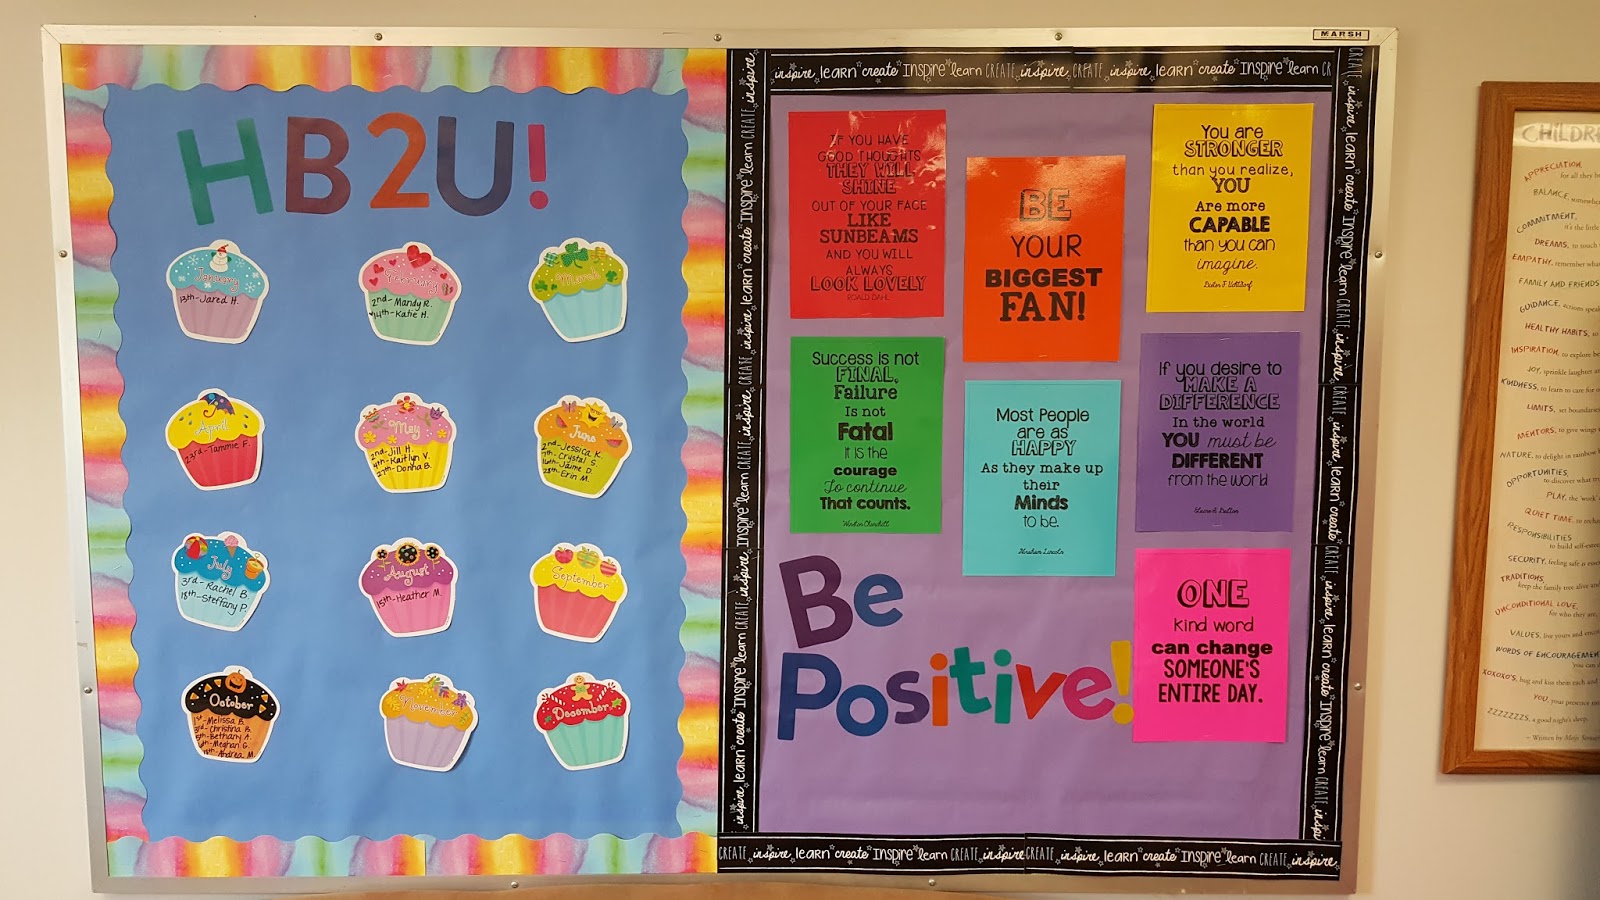 MARSH
HB2U!
January
13th-Jared H.
February
2nd-Mandy R.
14th-Katie H.
March
April
23rd-Tammie F.
May
2nd-Jill H.
4th-Kaitlyn V.
27th-Donna B.
June
2nd-Jessica K.
7th-Crystal S.
16th-Jaime D.
28th-Erin M.
July
3rd-Rachel B.
18th-Steffany P.
August
15th-Heather M.
September
October
1st-Melissa B.
3rd-Christina B.
5th-Bethany A.
Meghan G.
Andrea M.
November
December
inspire learn create INSPIRE learn CREATE inspire CREATE inspire learn create INSPIRE learn CR
IF YOU HAVE
GOOD THOUGHTS
THEY WILL
SHINE
OUT OF YOUR FACE
LIKE
SUNBEAMS
AND YOU WILL
ALWAYS
LOOK LOVELY
ROALD DAHL
BE
YOUR
BIGGEST
FAN!
You are
STRONGER
than you realize,
YOU
Are more
CAPABLE
than you can
imagine.
Success is not
FINAL,
Failure
Is not
Fatal
it is the
courage
To continue
That counts.
Winston Churchill
Most People
are as
HAPPY
As they make up
their
Minds
to be.
Abraham Lincoln
If you desire to
MAKE A
DIFFERENCE
In the world
YOU must be
DIFFERENT
from the world
Be
Positive!
ONE
kind word
can change
SOMEONE'S
ENTIRE DAY.
CREATE inspire learn create INSPIRE learn CREATE inspire CREATE inspire learn create INSPIRE learn CREATE inspire
CHILDRE
APPRECIATION,
for all they b
BALANCE, somewhere
COMMITMENT,
it's the little
DREAMS, to touch
EMPATHY, remember what
FAMILY AND FRIENDS
GUIDANCE, actions speak
HEALTHY HABITS, to
INSPIRATION, to explore be
JOY, sprinkle laughter
KINDNESS, to learn to care for
LIMITS, set boundaries
MENTORS, to give wings
NATURE, to delight in rainbow
OPPORTUNITIES,
to discover what
PLAY, the 'work'
QUIET TIME, to rech
RESPONSIBILITIES
to build self-este
SECURITY, feeling safe is esse
TRADITIONS,
keep the family tree alive and
UNCONDITIONAL LOVE,
for who they are,
VALUES, live yours and enco
WORDS OF ENCOURAGEMENT
you can d
XOXOXO'S, hug and kiss them each and
YOU, your presence
ZZZZZZZS, a good night's sleep.